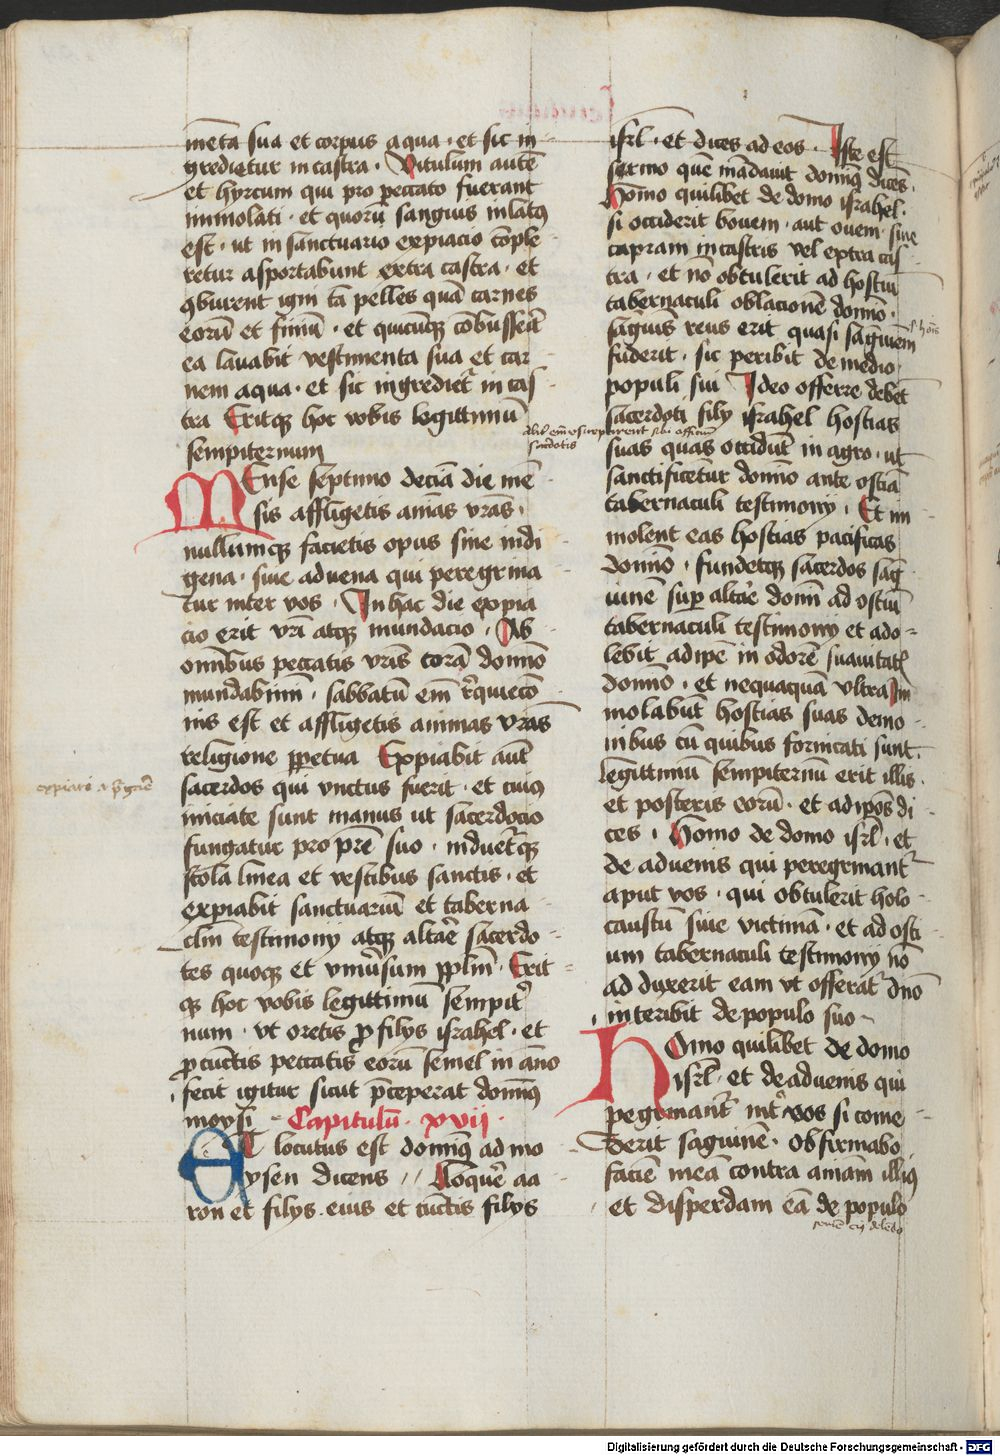 menta sua et corpus aqua · et sic in
gredietur in castra · Vitulum autē
et hyrcum qui pro peccato fuerant
immolati · et quorū sanguis inlatꝯ
est · ut in sanctuario expiacio cōple
retur asportabunt extra castra · et
ꝯburent igni tā pelles quā carnes
eorū et fimū · et quicūqꝫ cōbusserit
ea lauabit vestimenta sua et car
nem aqua · et sic ingrediet᷑ in cas
tra Eritqꝫ hoc vobis legittimū
sempiternum
Mense septimo decīa die mē
sis affligetis aīas vr̄as ·
nullumqꝫ facietis opus siue indi
gena · siue aduena qui peregrina
tur inter vos · In hac die expia
cio erit vr̄i atqꝫ mundacio · Ab
omībus peccatis vr̄is corā domīo
mundabimī · sabbatū em̄ r̄quiecō
nis est et affligetis animas vr̄as
religione ꝑpetua Expiabit aūt
sacerdos qui vnctus fuerit · et cuiꝯ
iniciate sunt manus ut sacerdocio
fungatur pro pr̄e suo · induet᷑qꝫ
stola linea et vestibus sanctis · et
expiabit sanctuariū et taberna
clm̄ testimony atqꝫ altar̄e sacerdo
tes quoqꝫ et vniu᷑sum ppl̄m · Erit
qꝫ hoc vobis legittimū sempit᷑
num · vt oretis ꝓ filys israhel · et
ꝓ cūctis peccatis eorū semel in āno
fecit igitur sicut p̄ceperat domīꝯ
moysi Capitulū · xvij ·
Et locutus est domīꝯ ad mo
ysen dicens // Loquē aa
ron et filys eius et cūctis filys
isrl̄ · et dices ad eos · Iste est
sermo quē mādauit domīꝯ dicēs ·
Homo quilibet de domo israhel ·
si occiderit bouem · aut ouem siue
capram in castris vel extra cas
tra · et nō obtulerit ad hostiū
tabernaculi oblacionē domīo ·
sāguīs reus erit quasi sāguinem
fuderit · sic peribit de medio
populi sui Ideo offerre debēt
sacerdoti fily israhel hostias
suas quas occidūt in agro · ut
sanctificētur domīo ante ostiū
tabernaculi testimony · Et im
molent eas hostias pacificas
domīo · fundetqꝫ sacerdos sāg
uinē sup altar̄e domī ad ostiū
tabernaculi testimony et ado
lebit adipē in odorē suauitatꝭ
domīo · et nequaquā vltra Im
molabūt hostias suas demo
nibus cū quibus fornicati sunt ·
legittimū sempiternū erit illis
et posteris eorū · et ad ip̄os di
ces · Homo de domo isrl̄ · et
de aduenis qui peregrinant᷑
aput vos · qui obtulerit holo
caustū siue victimā · et ad osti
um tabernaculi testimony nō
ad duxerit eam vt offerat᷑ dn̄o
interibit de populo suo
Homo quilibet de domo
isrl̄ · et de aduenis qui
pegrinant᷑ int᷑ vos si come
derit saguinē · obfirmabo
faciē meā contra aīam illiꝯ
et disperdam eā de populo
Digitalisierung gefördert durch die Deutsche Forschungsgemeinschaft - DFG